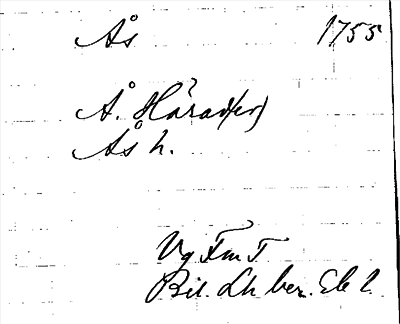 Ås 1755
Å. Härad(er)
Ås h.
Vg Fm T.
Bil. Lh ber. Ek 2.